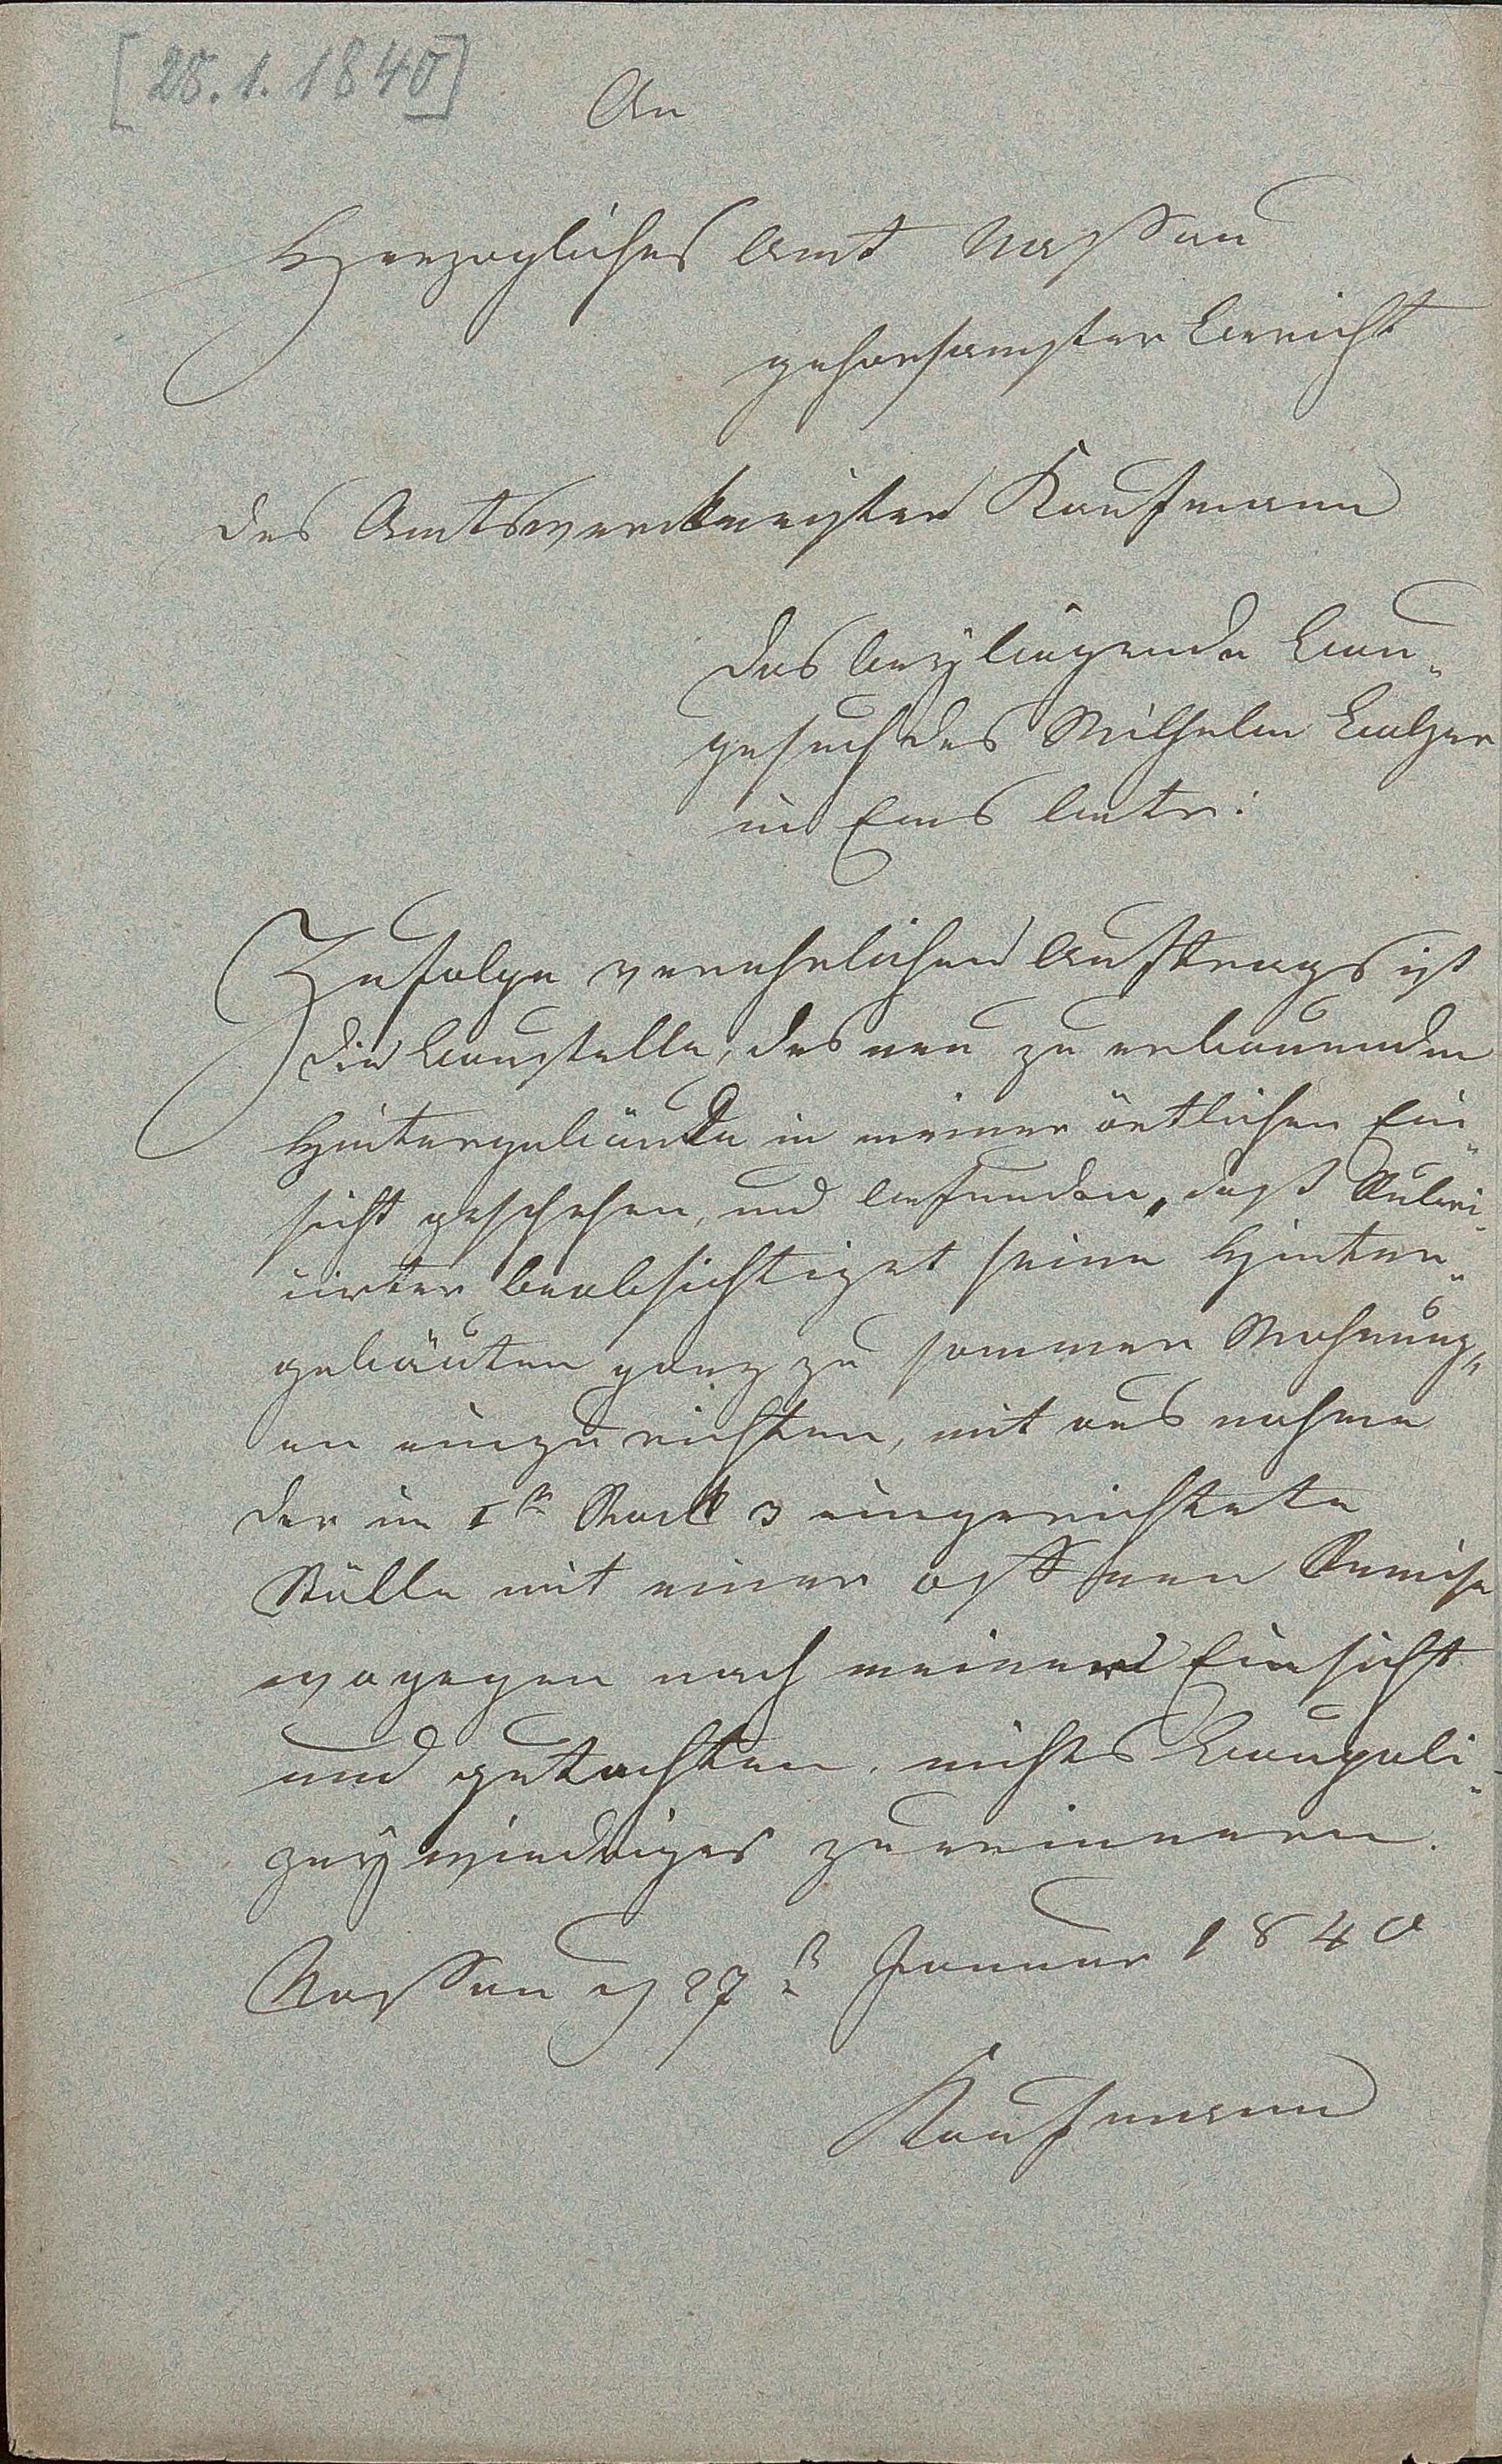 [25.1.1840]
An
Herzogliches Amt Nassau
gehorsamster Bericht
des Amtswerckmeister Kaufmann
das beyliegende Bau-
gesuch des Wilhelm Balzer
in Ems betr:
Zufolge verehrlichen Auftrags ist
die Baustelle, des neu zu erbauenden
Hintergebäude in meiner örtlichen Ein-
sicht geschehen, und befunden, daß Rubri-
cirter beabsichtiget seine Hinter-
gebäuten ganz zu sommer Wohnung-
en einzurichten, mit aus nahme
der im 1ten Stock 3 eingerichtete
Ställe mit einer offenen Remise
wogegen nach meiner Einsicht
und gutachten, nichts Baupoli-
zeywiedriges zuerinnern.
Nassau d 27t Januar 1840
Kaufmann